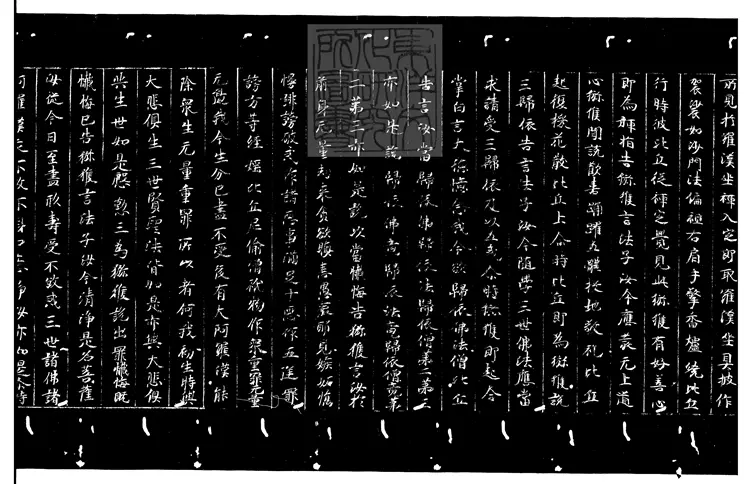 所見於羅漢坐禪入定即取羅漢坐具披作
袈裟如沙門法偏袒右肩手擎香爐繞比丘
行時彼比丘從禪定覺見此獼猴有好善心
即為彈指告獼猴言法子汝今應發无上道
心獼猴聞說歡喜踊躍五體投地敬礼比丘
起復採花散比丘上尒時比丘即為獼猴說
三歸依告言法子汝今隨學三世佛法應當
求請受三歸依及以五戒尒時獼猴即起合
掌白言大德憶念我今欲歸依佛法僧比丘
告言汝當歸依佛歸依法歸依僧第二第三
亦如是說歸依佛竟歸依法竟歸依僧竟第
二第三亦如是說次當懺悔告獼猴言汝於
前身无量
慢誹謗破戒作諸惡事滿足十惡作五逆罪
謗方等經婬比丘尼偷僧祇物作眾重罪无量
无邊我今生分已盡不受後有大阿羅漢能
除眾生无量重罪所以者何我初生時與
大悲俱生三世賢聖法皆如是亦與大悲俱
共生世如是慇懃三為獼猴說出罪懺悔既
懺悔已告獼猴言法子汝今清淨是名菩薩
汝從今日至盡形壽受不殺戒三世諸佛諸
阿羅漢